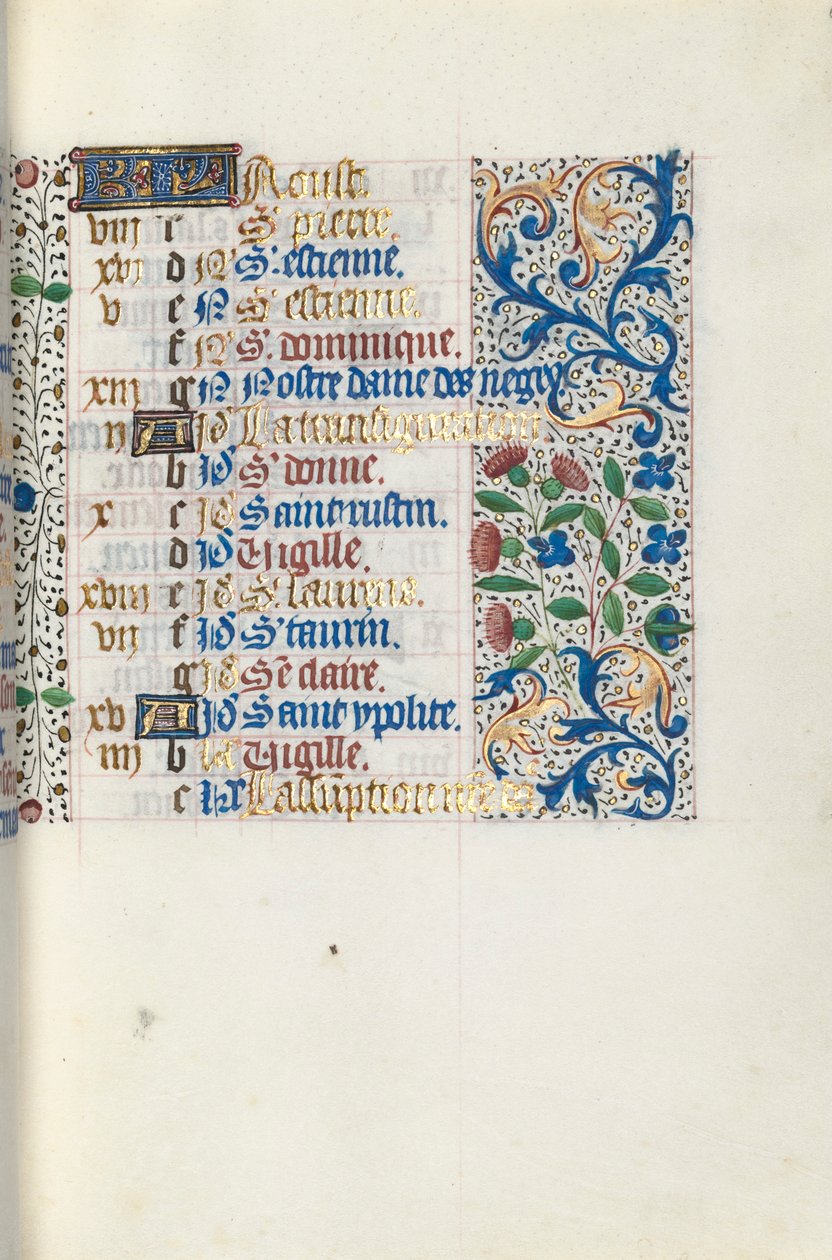 KL Aoust
viii c S. pierre.
xvi d N S. estienne.
v e N S. estienne.
f N S. dominique.
xiii g N Nostre dame des negez
ii A id La transfiguration.
b id S. donne.
x c id Saint iustin.
d id Vigille.
xviii e id S. laurens.
vii f id S. taurin.
g id Se claire.
xv A id Saint ypolite.
iiii b la Vigille.
c kl L'assuption nre